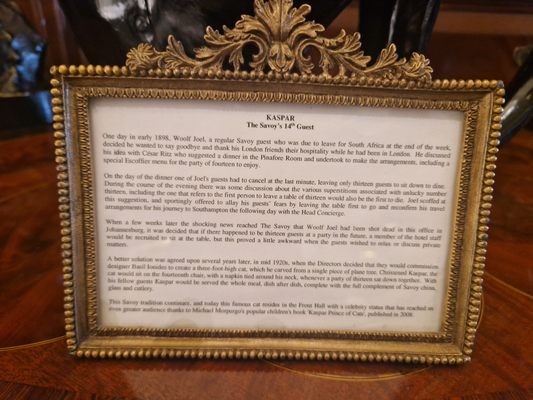 KASPAR
The Savoy's 14th Guest
One day in early 1898, Woolf Joel, a regular Savoy guest who was due to leave for South Africa at the end of the week,
decided he wanted to say goodbye and thank his London friends their hospitality while he had been in London. He discussed
his idea with César Ritz who suggested a dinner in the Pinafore Room and undertook to make the arrangements, including a
special Escoffier menu for the party of fourteen to enjoy.
On the day of the dinner one of Joel's guests had to cancel at the last minute, leaving only thirteen guests to sit down to dine.
During the course of the evening there was some discussion about the various superstitions associated with unlucky number
thirteen, including the one that refers to the first person to leave a table of thirteen would also be the first to die. Joel scoffed at
this suggestion, and sportingly offered to allay his guests' fears by leaving the table first to go and reconfirm his travel
arrangements for his journey to Southampton the following day with the Head Concierge.
When a few weeks later the shocking news reached The Savoy that Woolf Joel had been shot dead in this office in
Johannesburg, it was decided that if there happened to be thirteen guests at a party in the future, a member of the hotel staff
would be recruited to sit at the table, but this proved a little awkward when the guests wished to relax or discuss private
matters.
A better solution was agreed upon several years later, in mid 1920s, when the Directors decided that they would commission
designer Basil Ionides to create a three-foot high cat, which he carved from a single piece of plane tree. Christened Kaspar, the
cat would sit on the fourteenth chair, with a napkin tied around his neck, whenever a party of thirteen sat down together. With
his fellow guests Kaspar would be served the whole meal, dish after dish, complete with the full complement of Savoy china,
glass and cutlery.
This Savoy tradition continues, and today this famous cat resides in the Front Hall with a celebrity status that has reached an
even greater audience thanks to Michael Morpurgo's popular children's book 'Kaspar Prince of Cats', published in 2008.